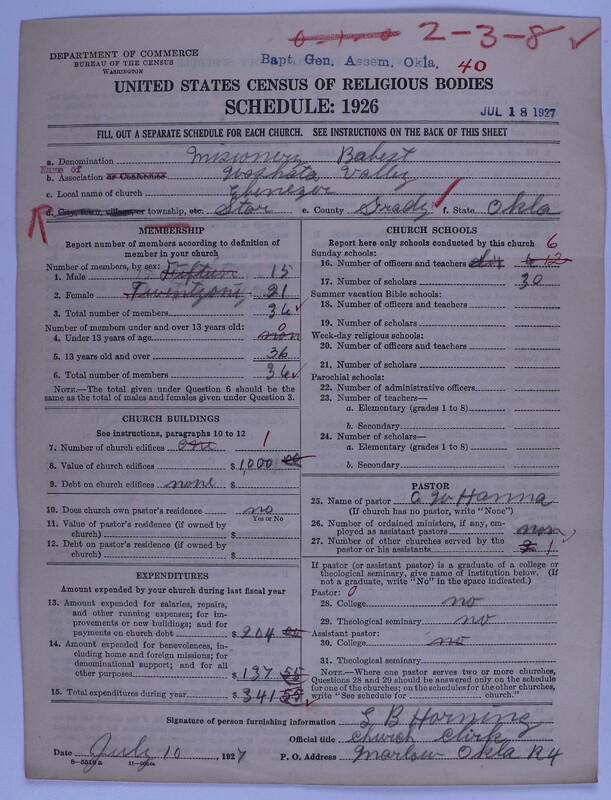 0-1-0 2-3-8 ✓
DEPARTMENT OF COMMERCE
BUREAU OF THE CENSUS
WASHINGTON
Bapt. Gen. Assem. Okla, 40
UNITED STATES CENSUS OF RELIGIOUS BODIES
SCHEDULE: 1926
JUL 18 1927
FILL OUT A SEPARATE SCHEDULE FOR EACH CHURCH. SEE INSTRUCTIONS ON THE BACK OF THIS SHEET
a. Denomination Misionery Babist
Name of
b. Association or Conference Washata Valley
c. Local name of church Ebenezer
d. City, town, village, or township, etc. Star e. County Grady ✓ f. State Okla
MEMBERSHIP
Report number of members according to definition of member in your church
Number of members, by sex:
1. Male Fifteen 15
2. Female Twentyone 21
3. Total number of members 36 ✓
Number of members under and over 13 years old: 0
4. Under 13 years of age non
5. 13 years old and over 36
6. Total number of members 36 ✓
NOTE.—The total given under Question 6 should be the same as the total of males and females given under Question 3.
CHURCH BUILDINGS
See instructions, paragraphs 10 to 12
7. Number of church edifices One 1
8. Value of church edifices $ 1,000 00
9. Debt on church edifices none $
10. Does church own pastor's residence no
Yes or No
11. Value of pastor's residence (if owned by church) $
12. Debt on pastor's residence (if owned by church) $
EXPENDITURES
Amount expended by your church during last fiscal year
13. Amount expended for salaries, repairs, and other running expenses; for improvements or new buildings; and for payments on church debt $ 204 00
14. Amount expended for benevolences, including home and foreign missions; for denominational support; and for all other purposes $ 137 55
15. Total expenditures during year $ 341 55 ✓
CHURCH SCHOOLS
Report here only schools conducted by this church
Sunday schools: 6
16. Number of officers and teachers 12
17. Number of scholars 30
Summer vacation Bible schools:
18. Number of officers and teachers
19. Number of scholars
Week-day religious schools:
20. Number of officers and teachers
21. Number of scholars
Parochial schools:
22. Number of administrative officers
23. Number of teachers—
a. Elementary (grades 1 to 8)
b. Secondary
24. Number of scholars—
a. Elementary (grades 1 to 8)
b. Secondary
PASTOR
25. Name of pastor C W Hanna
(If church has no pastor, write "None")
26. Number of ordained ministers, if any, employed as assistant pastors non
27. Number of other churches served by the pastor or his assistants 2 1
If pastor (or assistant pastor) is a graduate of a college or theological seminary, give name of institution below. (If not a graduate, write "No" in the space indicated.)
Pastor: 0
28. College no
29. Theological seminary no
Assistant pastor:
30. College no
31. Theological seminary
NOTE.—Where one pastor serves two or more churches, Questions 28 and 29 should be answered only on the schedule for one of the churches; on the schedules for the other churches, write "See schedule for church."
Signature of person furnishing information L B Horning
Official title Church Clirk
Date July 10, 1927 P. O. Address Marlow Okla R4